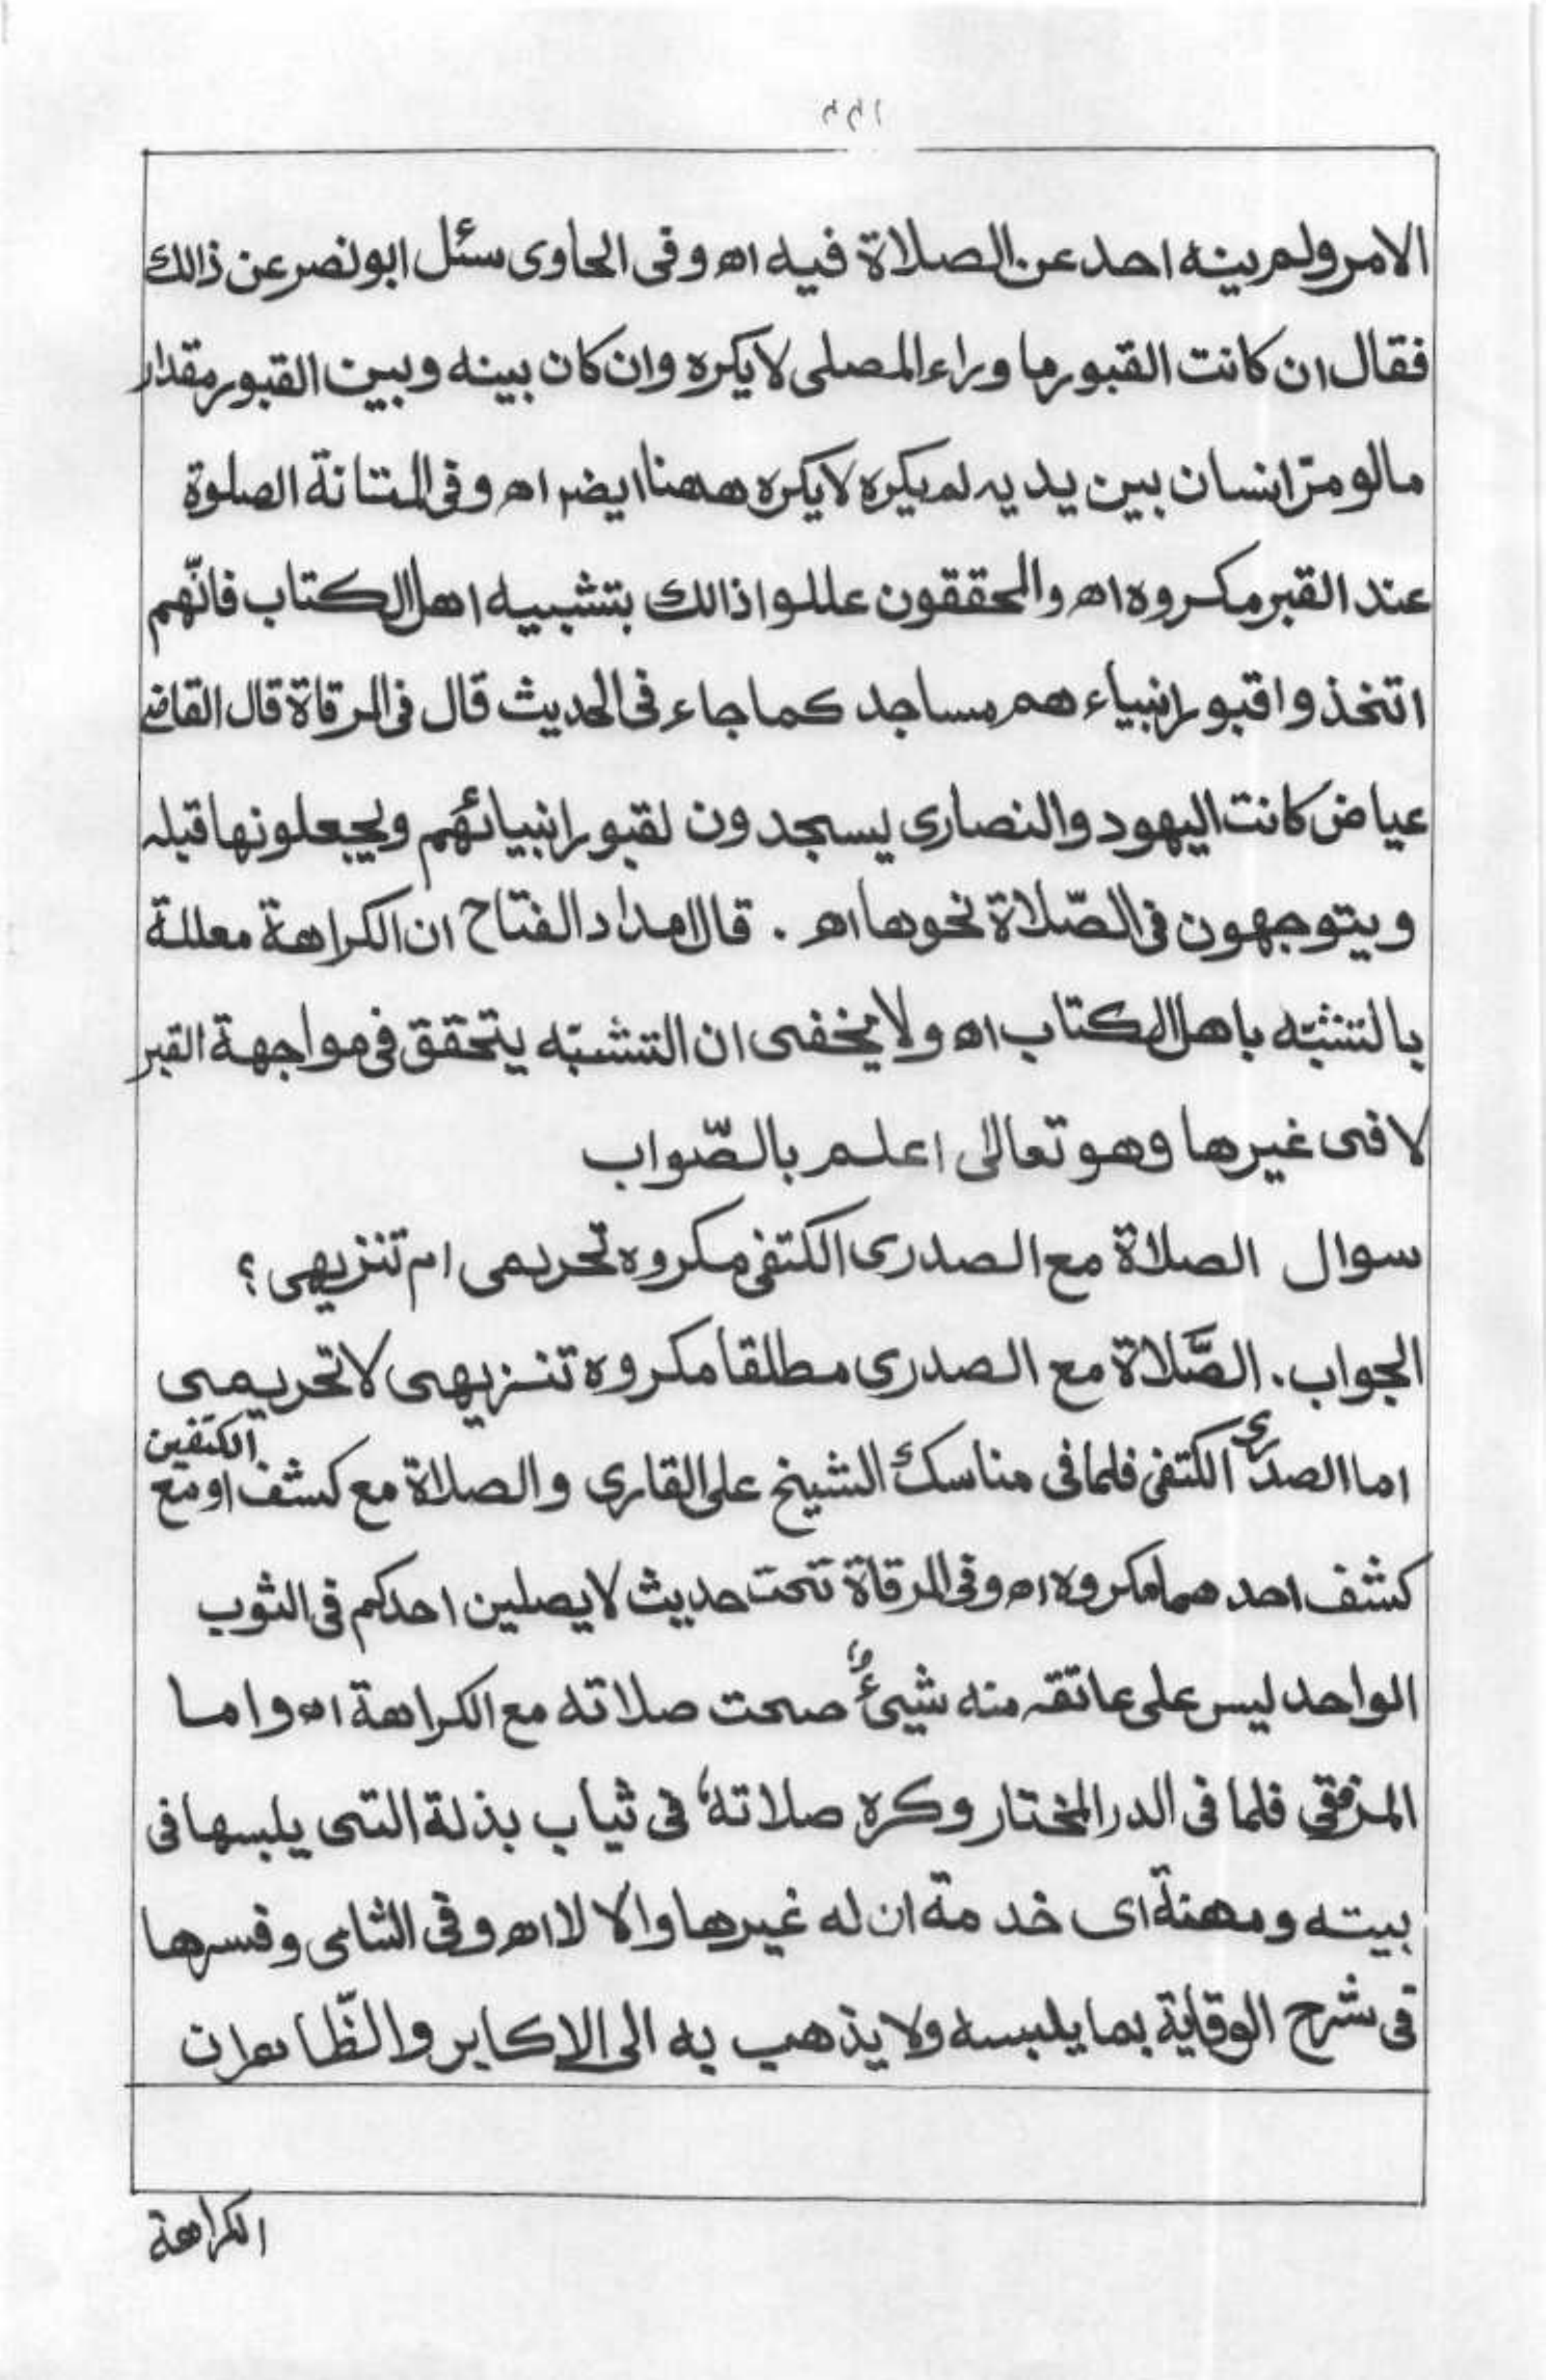 الامر ولم ينه احد عن الصلاة فيه اھ وفى الحاوى سئل ابو نصر عن ذالك
فقال ان كانت القبور ما وراء المصلى لا يكره وان كان بينه وبين القبور مقدار
مالو مرّ انسان بين يديه لم يكره لا يكره ههنا ايضر اھ وفى المتانة الصلوة
عند القبر مكروه اھ والمحققون عللوا ذالك بتشبيه اهل الكتاب فانّهم
اتخذوا قبور انبياء هم مساجد كما جاء فى الحديث قال فى المرقاة قال القاضى
عياض كانت اليهود والنصارى يسجدون لقبور انبيائهم ويجعلونها قبله
ويتوجهون فى الصّلاة نحوها اھ . قال امداد الفتاح ان الكراهة معللة
بالتشبّه باهل الكتاب اھ ولا يخفى ان التشبّه يتحقق فى مواجهة القبر
لا فى غيرها وهو تعالى اعلم بالصّواب
سوال الصلاة مع الصدرى الكتفى مكروه تحريمى ام تنزيهى ؟
الجواب . الصَّلاة مع الصدرى مطلقا مكروه تنزيهى لا تحريمى
اما الصدرى الكتفى فلما فى مناسك الشيخ على القارى والصلاة مع كشف او مع الكتفين
كشف احد هما مكروه اھ وفى المرقاة تحت حديث لا يصلين احدكم فى الثوب
الواحد ليس على عاتقه منه شيئٌ صحت صلاته مع الكراهة اھ واما
المرفقى فلما فى الدر المختار وكره صلاته فى ثياب بذلة التى يلبسها فى
بيته ومهنة اى خدمة ان له غيرها والا لا اھ وفى الشامى وفسرها
فى شرح الوقاية بما يلبسه ولا يذهب به الى الاكابر والظّاهر ان
الكراهة